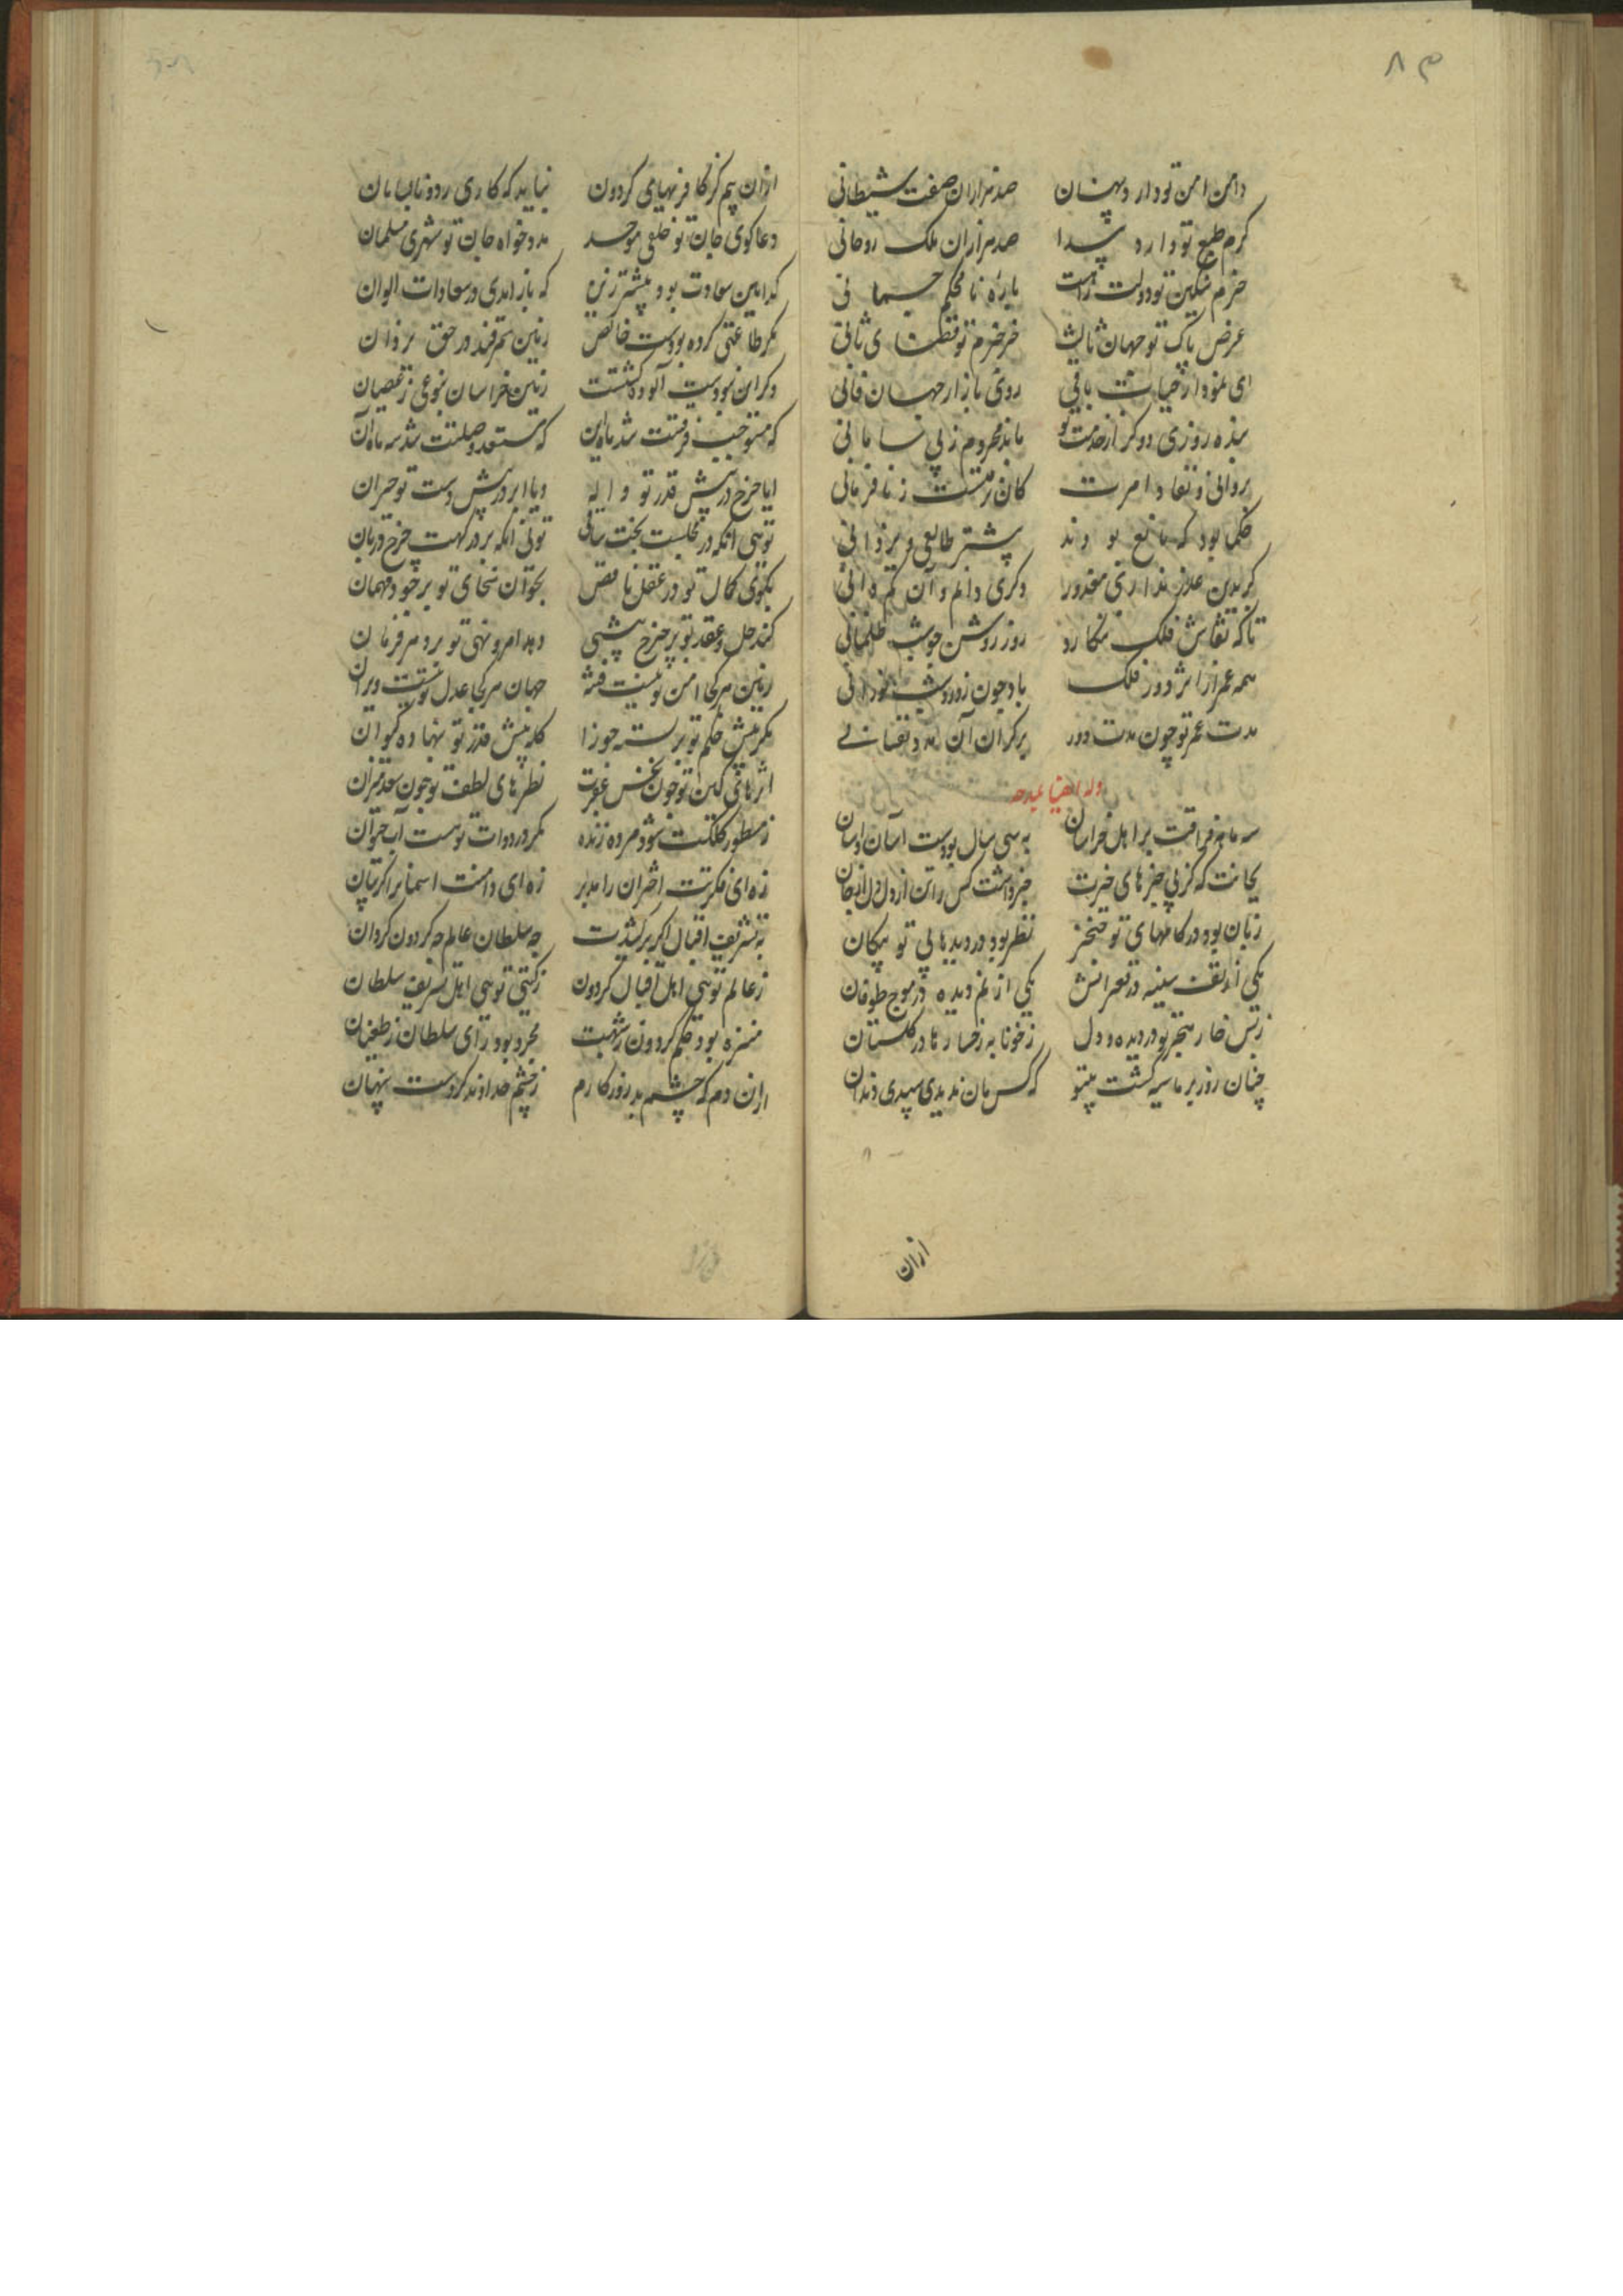 ۸۳
دامن امن تو دارد پنهان صد هزاران صفت شیطانی
کرم طبع تو دارد پیدا صد هزاران ملک روحانی
حزم سنکین تو دولت راست باره نا محکم جسمانی
عرض پاک تو جهان ثالث خرخرم تو قضای ثانی
ای نمودار حیات باقی روی بازار جهان فانی
بنده روزی دو کر از خدمت تو ماند محروم ز بی سامانی
بروانی و نفاذ امرت کان نرفتست ز نا فرمانی
حکما بود که مانع بودند بیشتر طالعی و یزدانی
کر بدین عذر نداری معذور وکری دانم و آن کم دانی
تا که نقاش فلک بنکارد روز روشن چو شب ظلمانی
همه عمر از اثر دور فلک باد چون روز شبت نورانی
مدت عمر تو چون مدت دور بر کران آمد و نقصانی
وله ایضا یمدحه
سه ماهه فراقت بر اهل خراسان به سی سال بودست آسان و آسان
بجانت که کز بی خبرهای خیرت خبر داشت کس را تن از دل دل از جان
زبان بود در کامها بی تو خنجر نظر بود در دیدها بی تو پیکان
یکی از تف سینه در قعر آتش یکی از نم دیده در موج طوفان
ز بس خار هجر تو در دیده و دل ز خونابه رخسارها در کلستان
چنان روز بر ما سیه کشت بیتو که کس مان ندیدی سپیدی دندان
ازان
ازان بیم کز کافر نهیهای کردون نباید که کاری رود نابسامان
دعا کوی جان تو خلقی موحد مدد خواه جان تو شهری مسلمان
کدامین سعادت بود بیشتر زین که باز آمدی در سعادات الوان
مکر طاعتی کرده بودست خالص زمین سمرقند در حق یزدان
وکر این نبودست آلوده کشتست زمین خراسان بنوعی ز عصیان
که مستوجب فرقتت شد ماه این که مستعد وصلتت شد سه ماه آن
ایا چرخ در پیش قدر تو واله ویا ابر در پیش دست تو حیران
تویی آنکه در مجلست بخت ساقی تویی آنکه بر درکهت چرخ دربان
بکوی کمال تو در عقل ناقص بخوان سخای تو بر جود مهمان
کند حل و عقد تو بر چرخ پیشی دهد امر و نهی تو بر دهر فرمان
زمین هر کجا امن تو نیست فتنه جهان هر کجا عدل تو نیست ویران
کمر پیش حکم تو بر بسته جوزا کله پیش قدر تو بنهاده کیوان
اثرهای کین تو چون نحس عقرب نظرهای لطف تو چون سعد میزان
ز مسطور کلکت شود مرده زنده مکر در دوات تو هست آب حیوان
زه ای فکرتت اختران را مدبر زه ای دامنت آسمان را کریبان
بتشریف اقبال اکر برکشیدت چه سلطان عالم چه کردون کردان
ز عالم تویی اهل اقبال کردون ز کیتی تویی اهل تشریف سلطان
منزه بود حکم کردون ز شهبت مجرد بود رای سلطان ز طغیان
ازان دم که چشم بد روزکارم ز چشم خداوند کردست پنهان